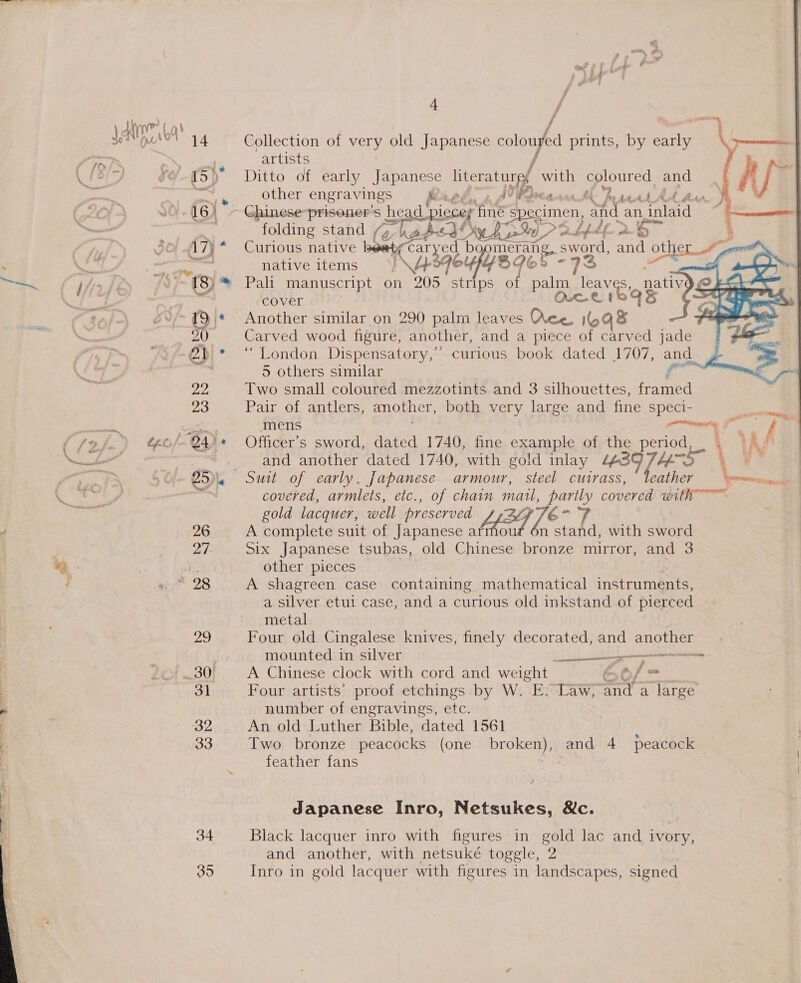 4
14 Collection of very old Japanese coloured prints, by early
artists
15 * Ditto of early Japanese literature, with coloured and
other engravings
16 Chinese prisoner's head piece, fine specimen, and an inlaid
folding stand
17 * Curious native carved boomerang, sword, and other
native items 43964/43965-73
18 * Pali manuscript on 205 strips of palm leaves, native
cover Ace 1698
19 * Another similar on 290 palm leaves Acc. 1698
20 Carved wood figure, another, and a piece of carved jade
21 * “London Dispensatory,” curious book dated 1707, and
5 others similar
22 Two small coloured mezzotints and 3 silhouettes, framed
23 Pair of antlers, another, both very large and fine speci-
mens
24 * Officer's sword, dated 1740, fine example of the period,
and another dated 1740, with gold inlay 43974-5
25 Suit of early Japanese armour, steel cuirass, leather
covered, armlets, etc., of chain mail, partly covered with
gold lacquer, well preserved 43976-7
26 A complete suit of Japanese armour on stand, with sword
27 Six Japanese tsubas, old Chinese bronze mirror, and 3
other pieces
28 A shagreen case containing mathematical instruments,
a silver etui case, and a curious old inkstand of pierced
metal
29 Four old Cingalese knives, finely decorated, and another
mounted in silver
30 A Chinese clock with cord and weight
31 Four artists' proof etchings by W. E. Law, and a large
number of engravings, etc.
32 An old Luther Bible, dated 1561
33 Two bronze peacocks (one broken), and 4 peacock
feather fans
Japanese Inro, Netsukes, &c.
34 Black lacquer inro with figures in gold lac and ivory,
and another, with netsuké toggle, 2
35 Inro in gold lacquer with figures in landscapes, signed